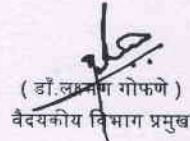 ( डॉ.लक्ष्मण गोफणे )
वैदयकीय विभाग प्रमुख